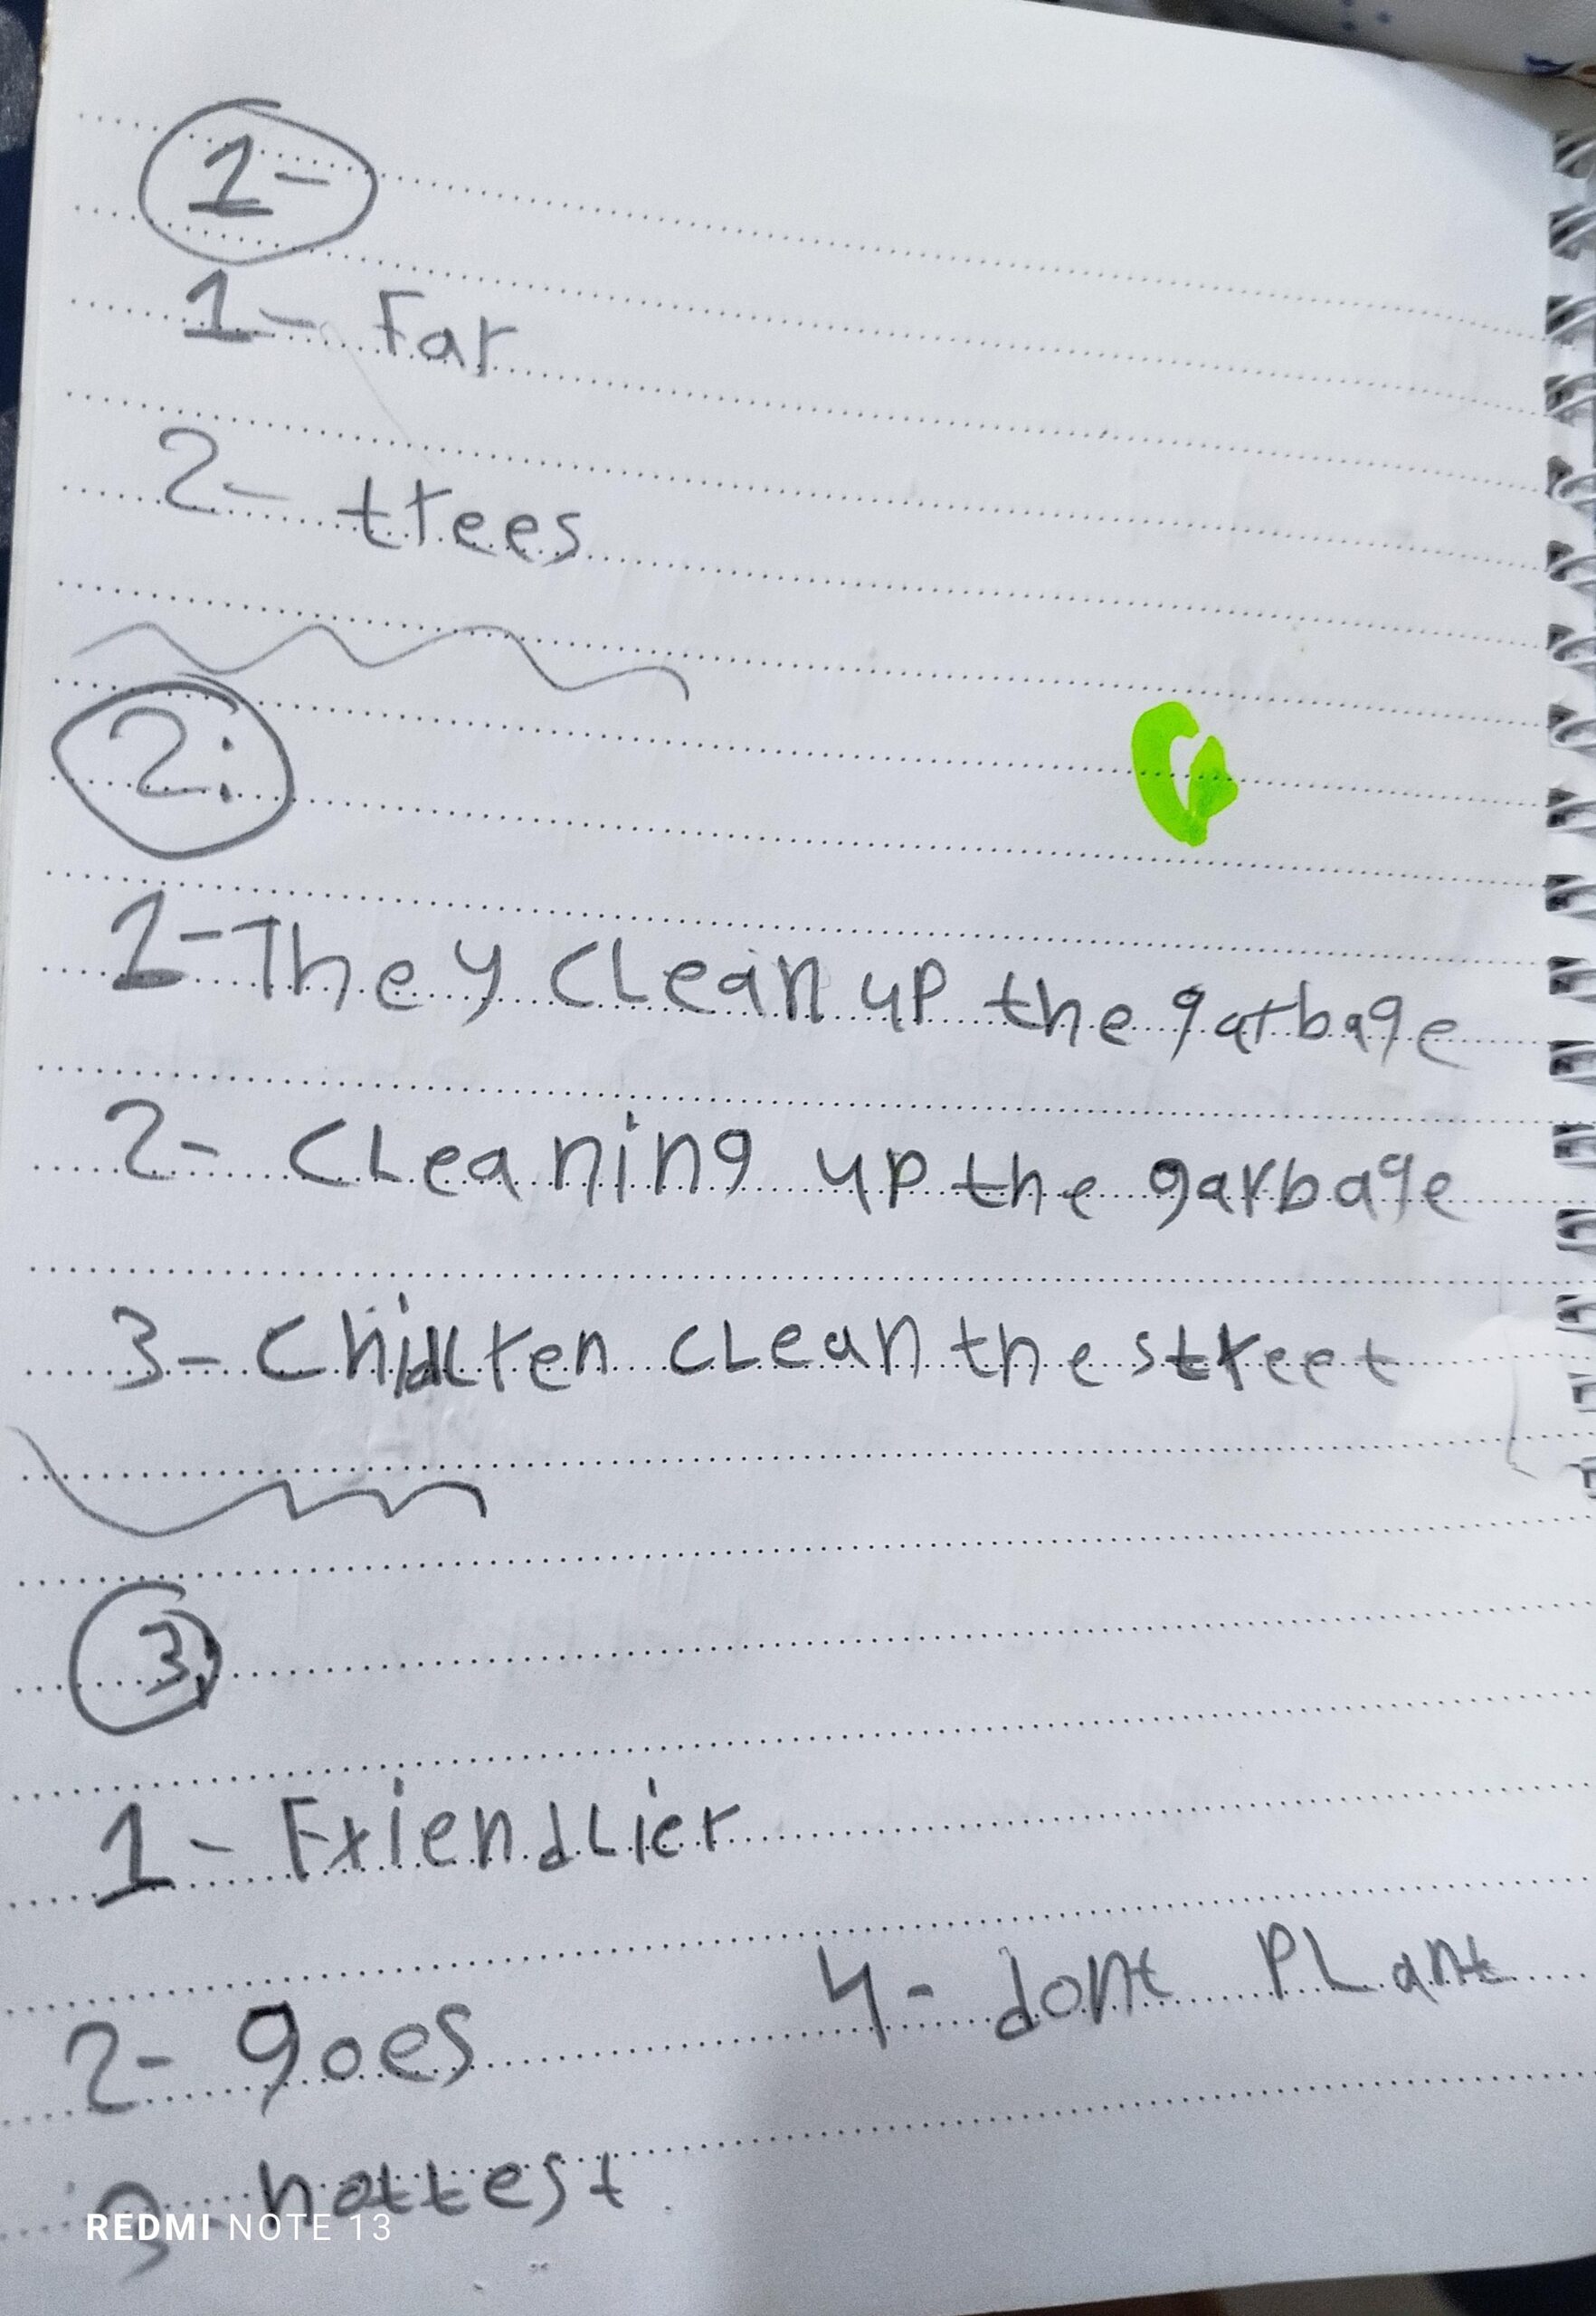 1-
1- Far
2- trees
2:
1- They clean up the garbage
2- cleaning up the garbage
3- Children clean the street
3:
1- Friendlier
2- goes
4- dont plant
3- hottest
REDMI NOTE 13